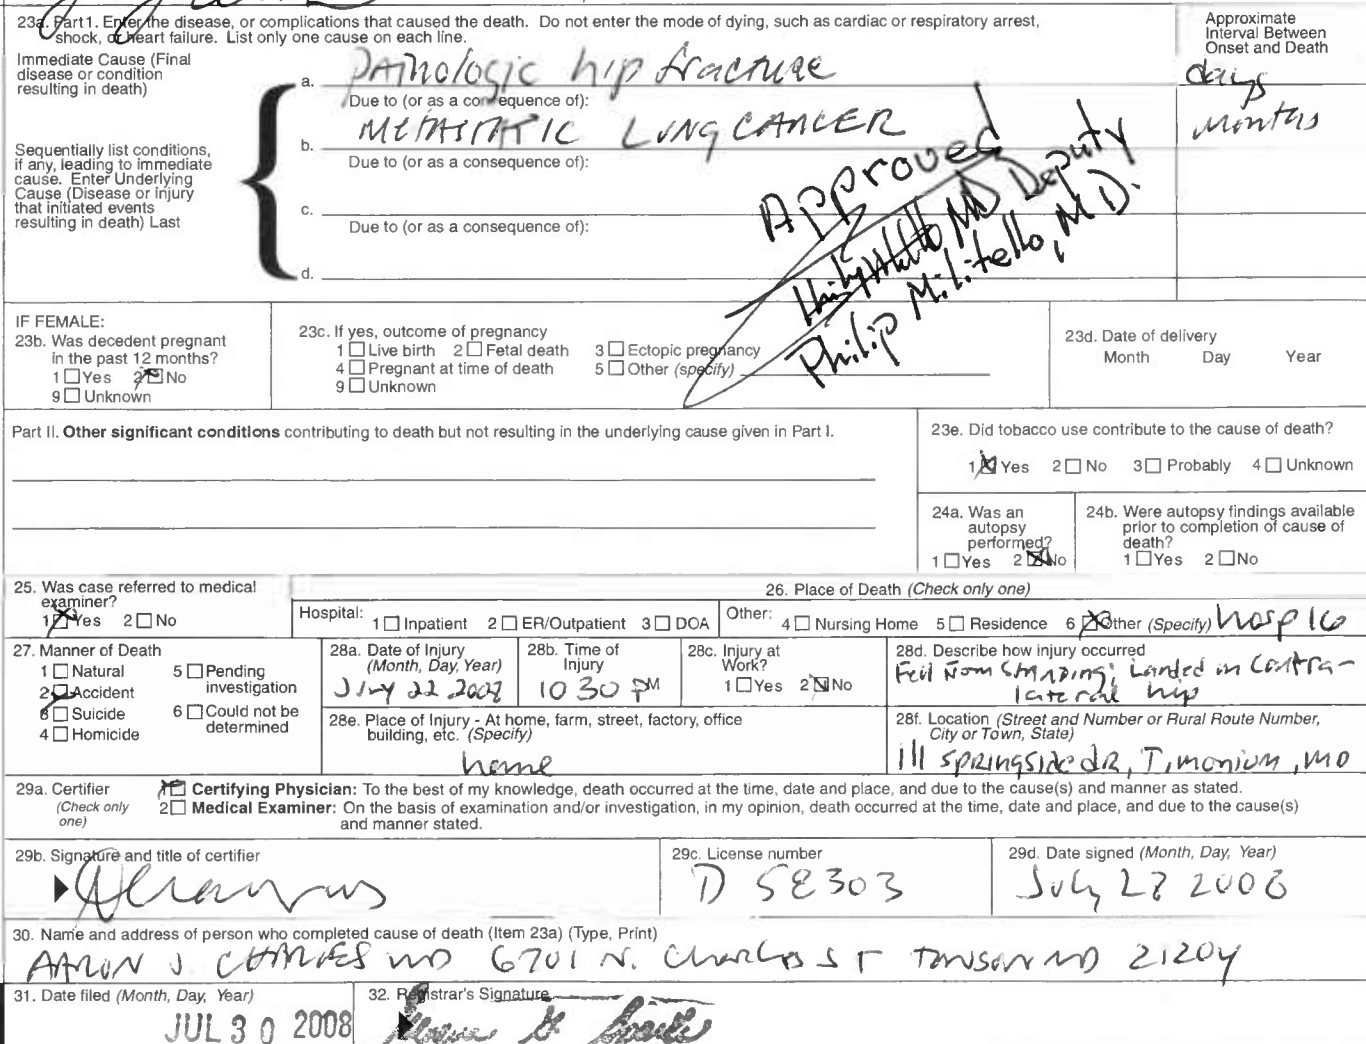 23a. Part1. Enter the disease, or complications that caused the death. Do not enter the mode of dying, such as cardiac or respiratory arrest,
shock, or heart failure. List only one cause on each line.
Approximate
Interval Between
Onset and Death
Immediate Cause (Final
disease or condition
resulting in death)
a. Pathologic hip fracture
days
Due to (or as a consequence of):
b. METASTATIC LUNG CANCER
months
Due to (or as a consequence of):
Sequentially list conditions,
if any, leading to immediate
cause. Enter Underlying
Cause (Disease or injury
that initiated events
resulting in death) Last
c.
Due to (or as a consequence of):
d.
Approved
MD Deputy
Philip Militello, M.D.
IF FEMALE:
23b. Was decedent pregnant
in the past 12 months?
1 Yes 2 No
9 Unknown
23c. If yes, outcome of pregnancy
1 Live birth 2 Fetal death 3 Ectopic pregnancy
4 Pregnant at time of death 5 Other (specify)
9 Unknown
23d. Date of delivery
Month Day Year
Part II. Other significant conditions contributing to death but not resulting in the underlying cause given in Part I.
23e. Did tobacco use contribute to the cause of death?
1 Yes 2 No 3 Probably 4 Unknown
24a. Was an
autopsy
performed?
1 Yes 2 No
24b. Were autopsy findings available
prior to completion of cause of
death?
1 Yes 2 No
25. Was case referred to medical
examiner?
1 Yes 2 No
26. Place of Death (Check only one)
Hospital: 1 Inpatient 2 ER/Outpatient 3 DOA
Other: 4 Nursing Home 5 Residence 6 Other (Specify)
27. Manner of Death
1 Natural 5 Pending
investigation
2 Accident
3 Suicide 6 Could not be
determined
4 Homicide
28a. Date of Injury
(Month, Day, Year)
July 22 2008
28b. Time of
Injury
10 30 PM
28c. Injury at
Work?
1 Yes 2 No
28d. Describe how injury occurred
Fell from standing; Landed on Contra-
lateral hip
28e. Place of Injury - At home, farm, street, factory, office
building, etc. (Specify)
home
28f. Location (Street and Number or Rural Route Number,
City or Town, State)
111 Springside dr, Timonium, MD
29a. Certifier
(Check only
one)
Certifying Physician: To the best of my knowledge, death occurred at the time, date and place, and due to the cause(s) and manner as stated.
2 Medical Examiner: On the basis of examination and/or investigation, in my opinion, death occurred at the time, date and place, and due to the cause(s)
and manner stated.
29b. Signature and title of certifier
29c. License number
D 58303
29d. Date signed (Month, Day, Year)
July 2008
30. Name and address of person who completed cause of death (Item 23a) (Type, Print)
AARON J CHARLES MD 6701 N. Charles ST Towson MD 21204
31. Date filed (Month, Day, Year)
JUL 30 2008
32. Registrar's Signature